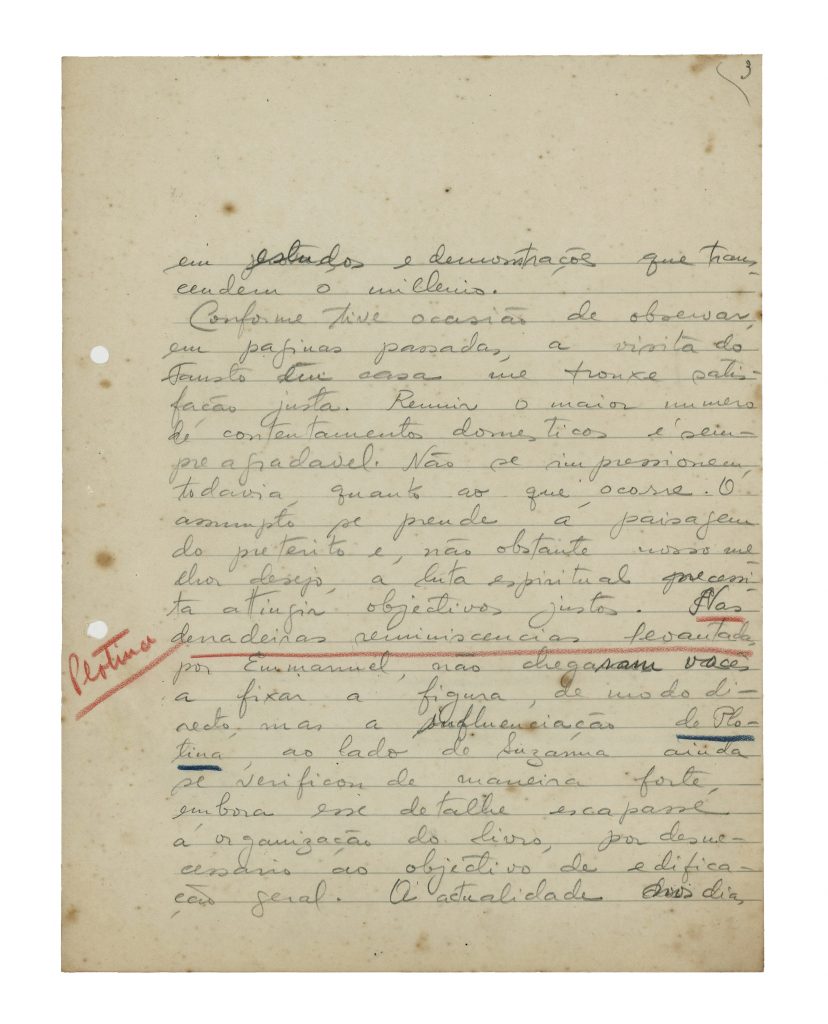 3
em estudos e demonstrações que trans-
cendem o millenio.
Conforme tive ocasião de observar,
em paginas passadas, a visita do
Fausto em casa me trouxe satis-
fação justa. Reunir o maior numero
de contentamentos domesticos é sem-
pre agradavel. Não se impressionem,
todavia, quanto ao que ocorre. O
assumpto se prende á paisagem
do preterito e, não obstante nosso me
lhor desejo, a luta espiritual necessi-
ta atingir objectivos justos. Nas
derradeiras reminiscencias levantadas
Plotina
por Emmanuel, não chegaram vocês
a fixar a figura, de modo di-
recto, mas a influenciação de Plo-
tina, ao lado de Suzanna ainda
se verificou de maneira forte,
embora esse detalhe escapasse
á organização do livro, por desne-
cessario ao objectivo de edifica-
ção geral. A actualidade dia,